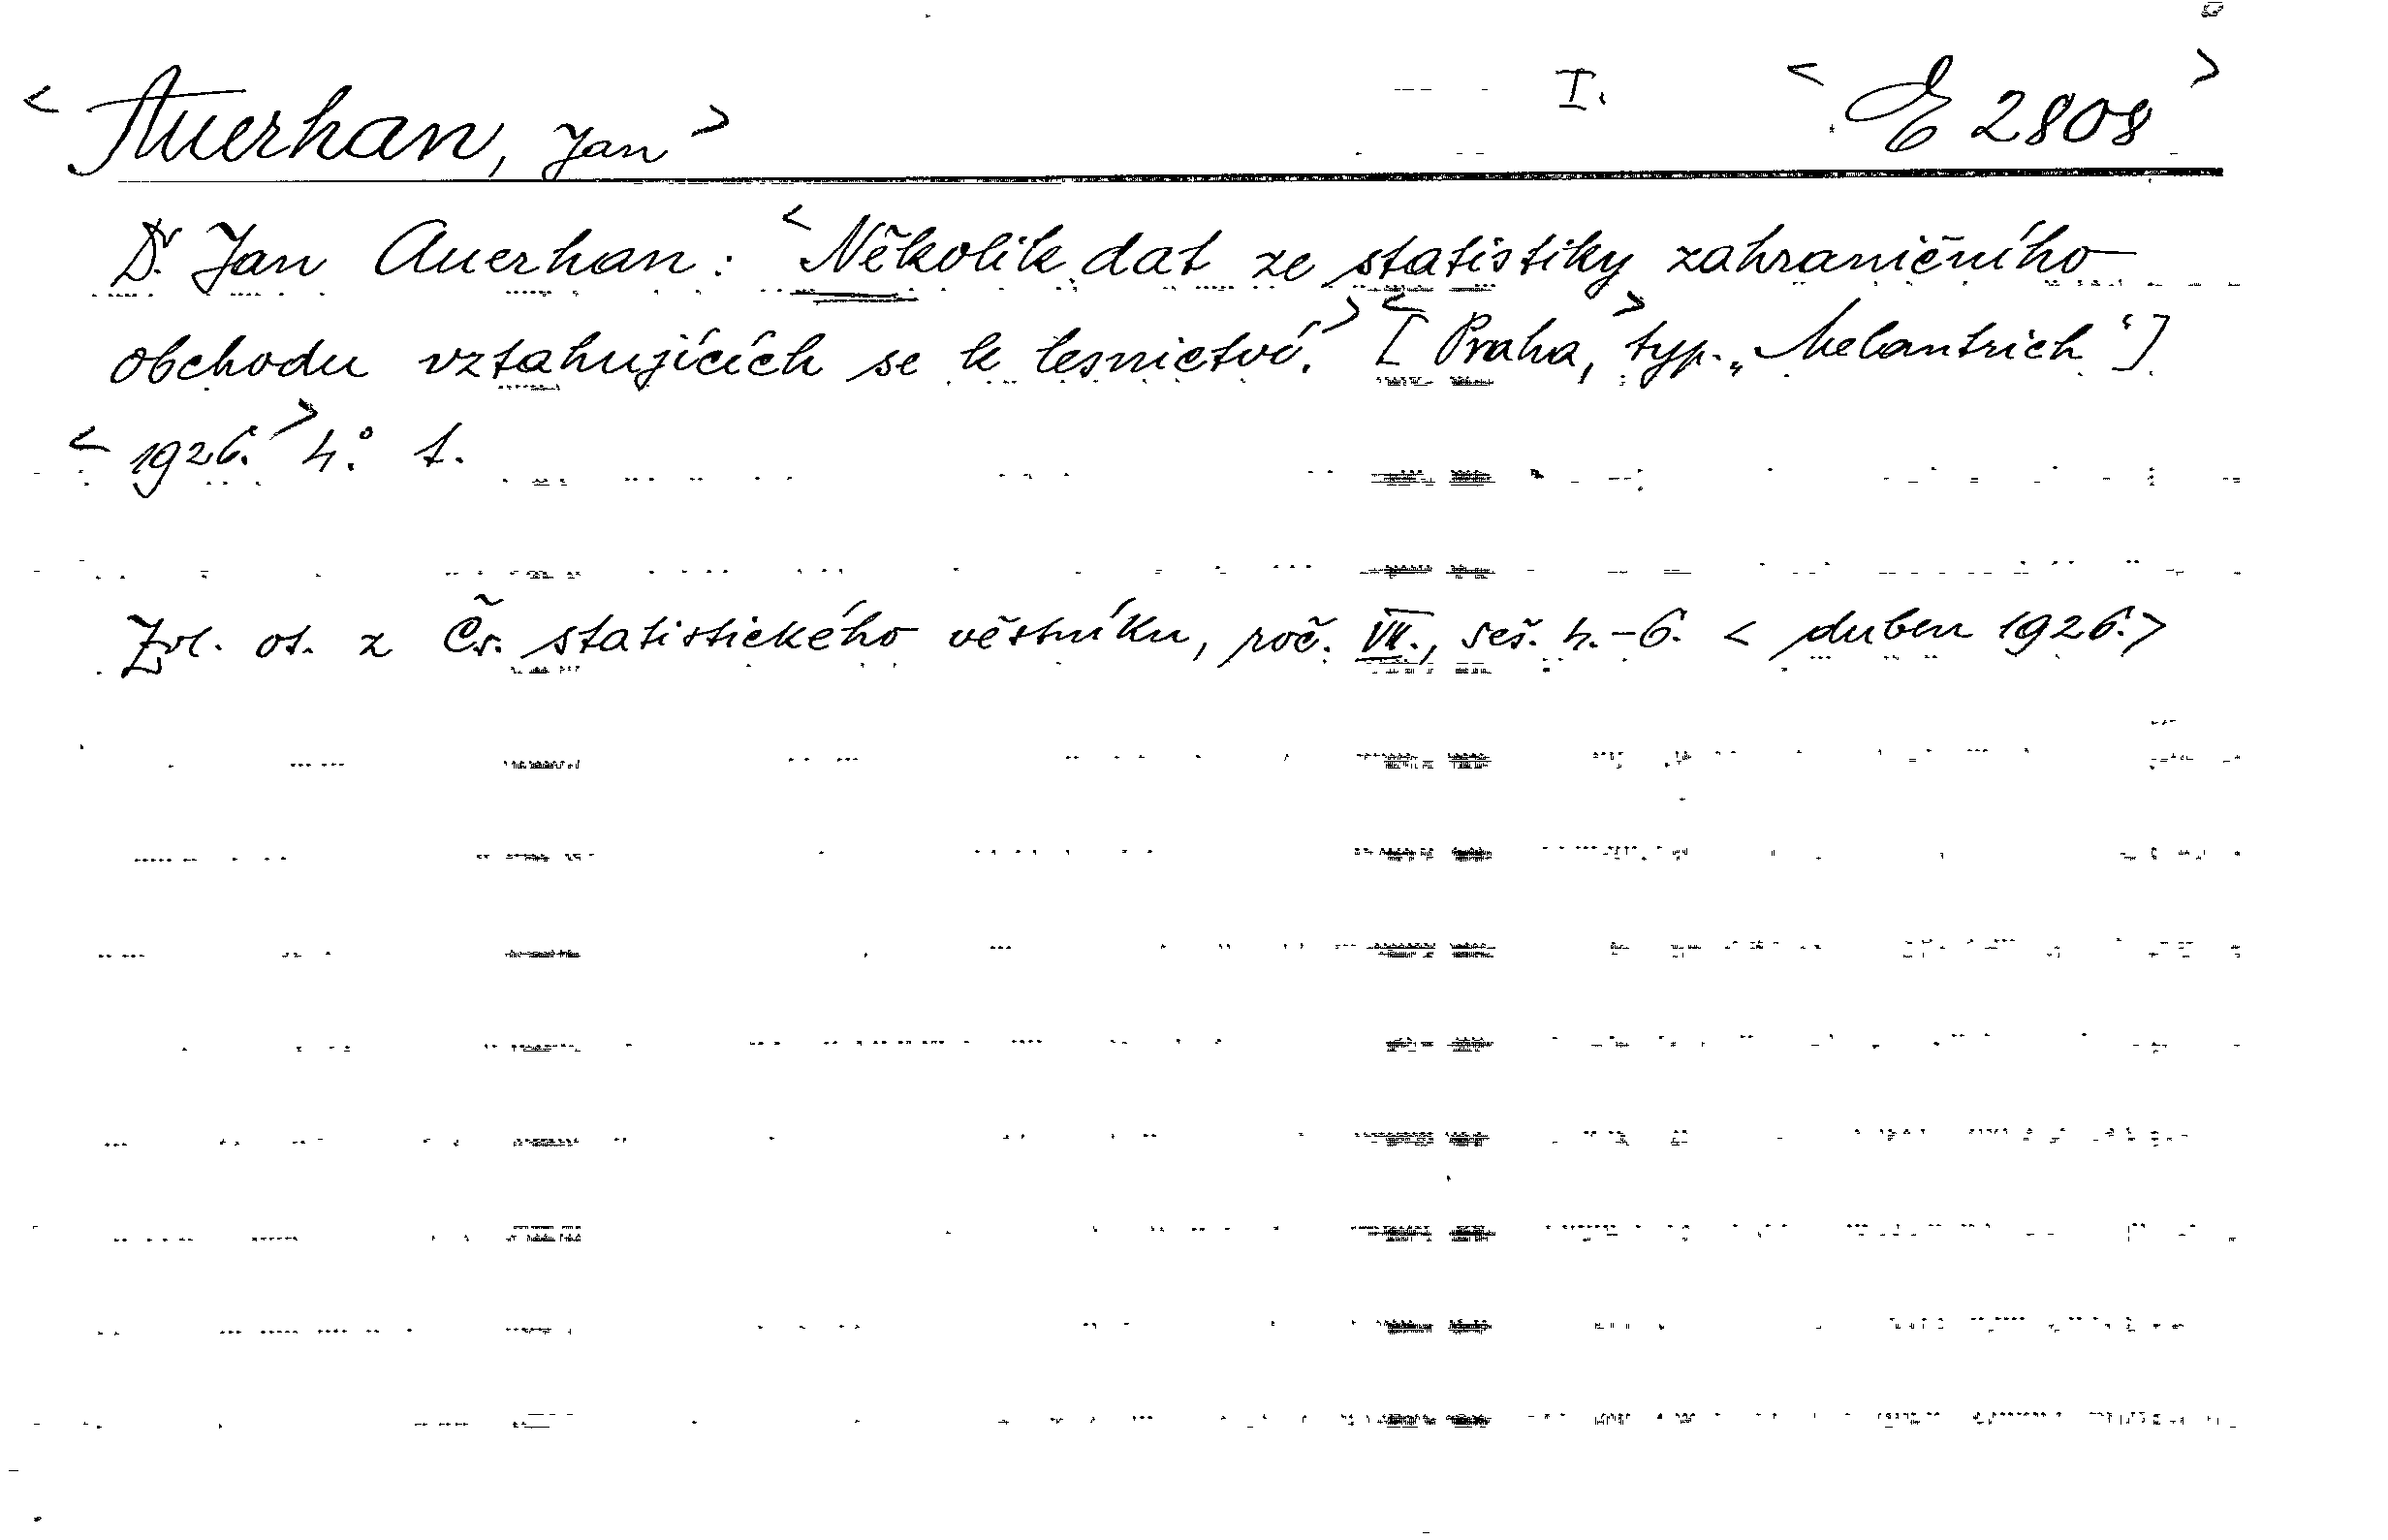 < Auerhan, Jan > I. < E 2808 >
Dr. Jan Auerhan: < Několik dat ze statistiky zahraničního
obchodu vztahujících se k lesnictví. > < [Praha, > typ. „Melantrich“]
< 1926. > 4.° 1.
Zvl. ot. z Čs. statistického věstníku, roč. VII., seš. 4.-6. < duben 1926. >